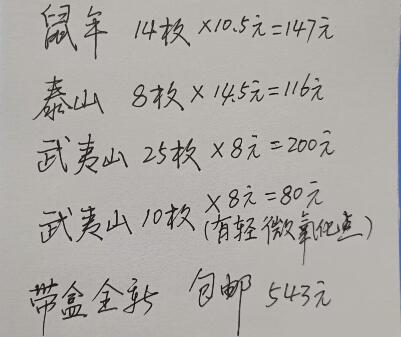 鼠年 14枚 ×10.5元=147元
泰山 8枚 ×14.5元=116元
武夷山 25枚 ×8元=200元
武夷山 10枚 ×8元=80元
(有轻微氧化点)
带盒全新 包邮 543元